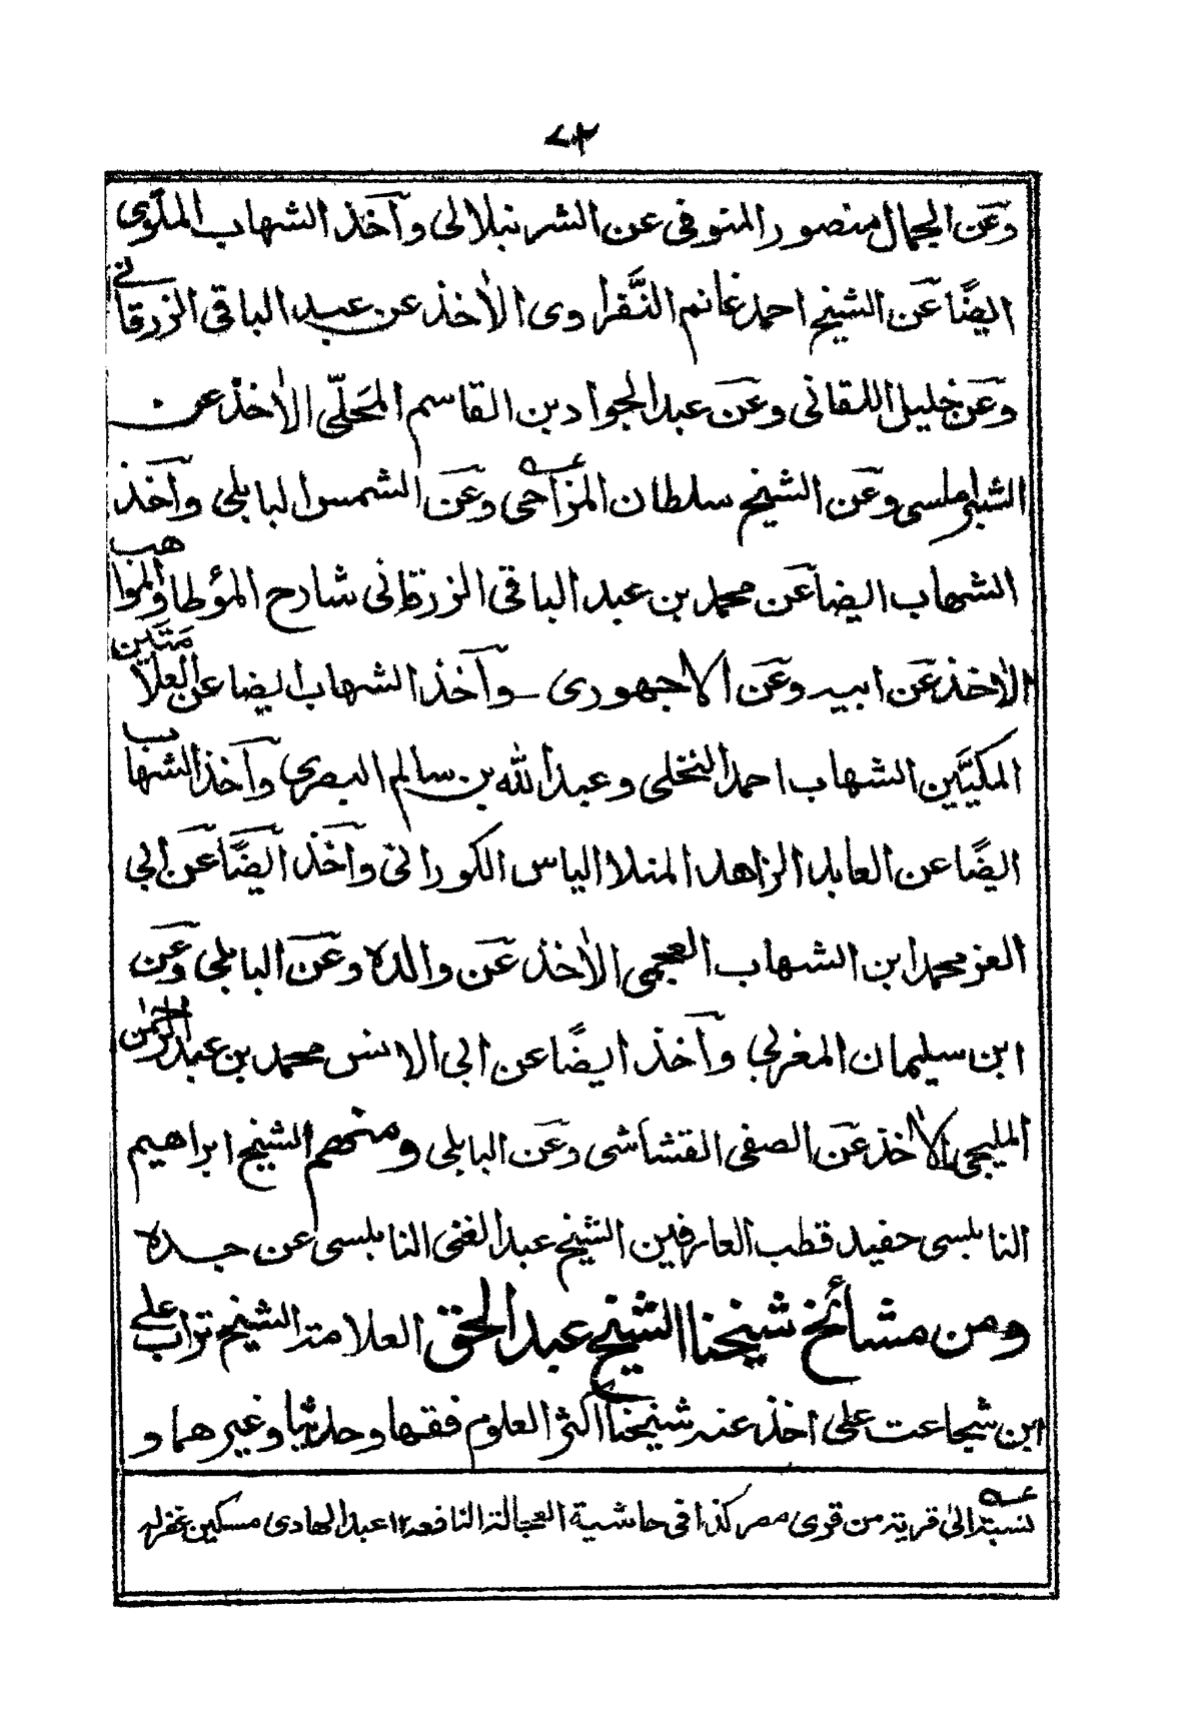 ٧٣
وعن الجمال منصور المنوفى عن الشرنبلالى وآخذ الشهاب الملوى
ايضًا عن الشيخ احمد غانم النَّفراوى الاٰخذ عن عبد الباقى الزرقانى
وعن خليل اللقانى وعن عبد الجواد بن القاسم المَحَلّى الاٰخذ عن
الشبراملسى وعن الشيخ سلطان المزاحى عــه وعن الشمس البابلى وآخذ
الشهاب ايضا عن محمد بن عبد الباقى الزرقانى شارح المؤطا والمواهب
الاٰخذ عن ابيه وعن الاجهورى وآخذ الشهاب ايضا عن العلّامتين
المكيَّين الشهاب احمد النخلى وعبد الله بن سالم البصرى وآخذ الشهاب
ايضًا عن العابد الزاهد المنلا الياس الكورانى وآخذ ايضًا عن ابى
العز محمد ابن الشهاب العجمى الاٰخذ عن والده وعن البابلى وعن
ابن سليمان المغربى وآخذ ايضًا عن ابى الانس محمد بن عبد الرحمٰن
المليجى الاٰخذ عن الصفى القشاشى وعن البابلى ومنهم الشيخ ابراهيم
النابلسى حفيد قطب العارفين الشيخ عبد الغنى النابلسى عن جده
ومن مشائخ شيخنا الشيخ عبد الحق العلامة الشيخ تراب على
ابن شجاعت على اخذ عنه شيخنا اكثر العلوم فقها وحديثا وغيرهما و
عــه نسبة الىٰ قرية من قرى مصر كذا فى حاشية العجالة النافعه ١٢ عبد الهادى مسكين غفرله